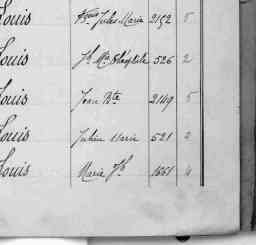 Louis fçois Jules Marie 2152 5
Louis Jh Mie Théophile 526 2
Louis Jean Bte 2149 5
Louis Julien Marie 521 2
Louis Marie Jh 1551 4